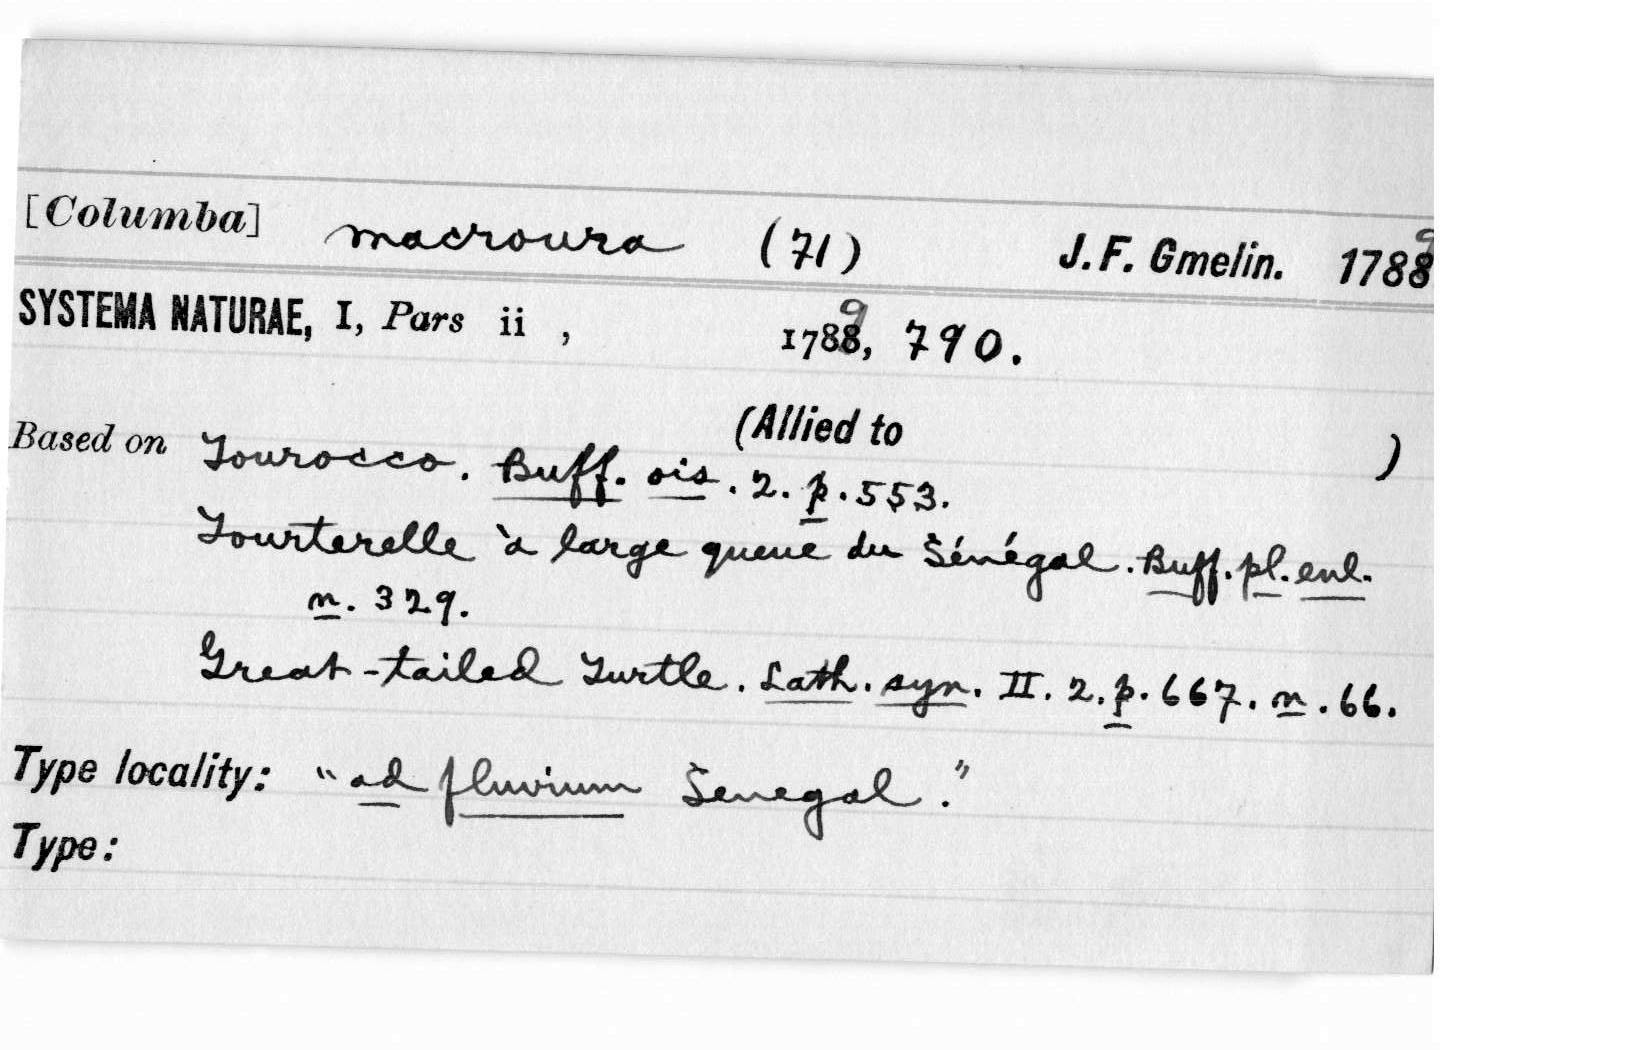 [Columba] macroura (71) J. F. Gmelin. 1789
SYSTEMA NATURAE, I, Pars ii , 1789, 790.
(Allied to )
Based on Tourocco. Buff. ois. 2. p. 553.
Tourterelle à large queue du Sénégal. Buff. pl. enl.
n. 329.
Great-tailed Turtle. Lath. syn. II. 2. p. 667. n. 66.
Type locality: "ad fluvium Senegal."
Type: